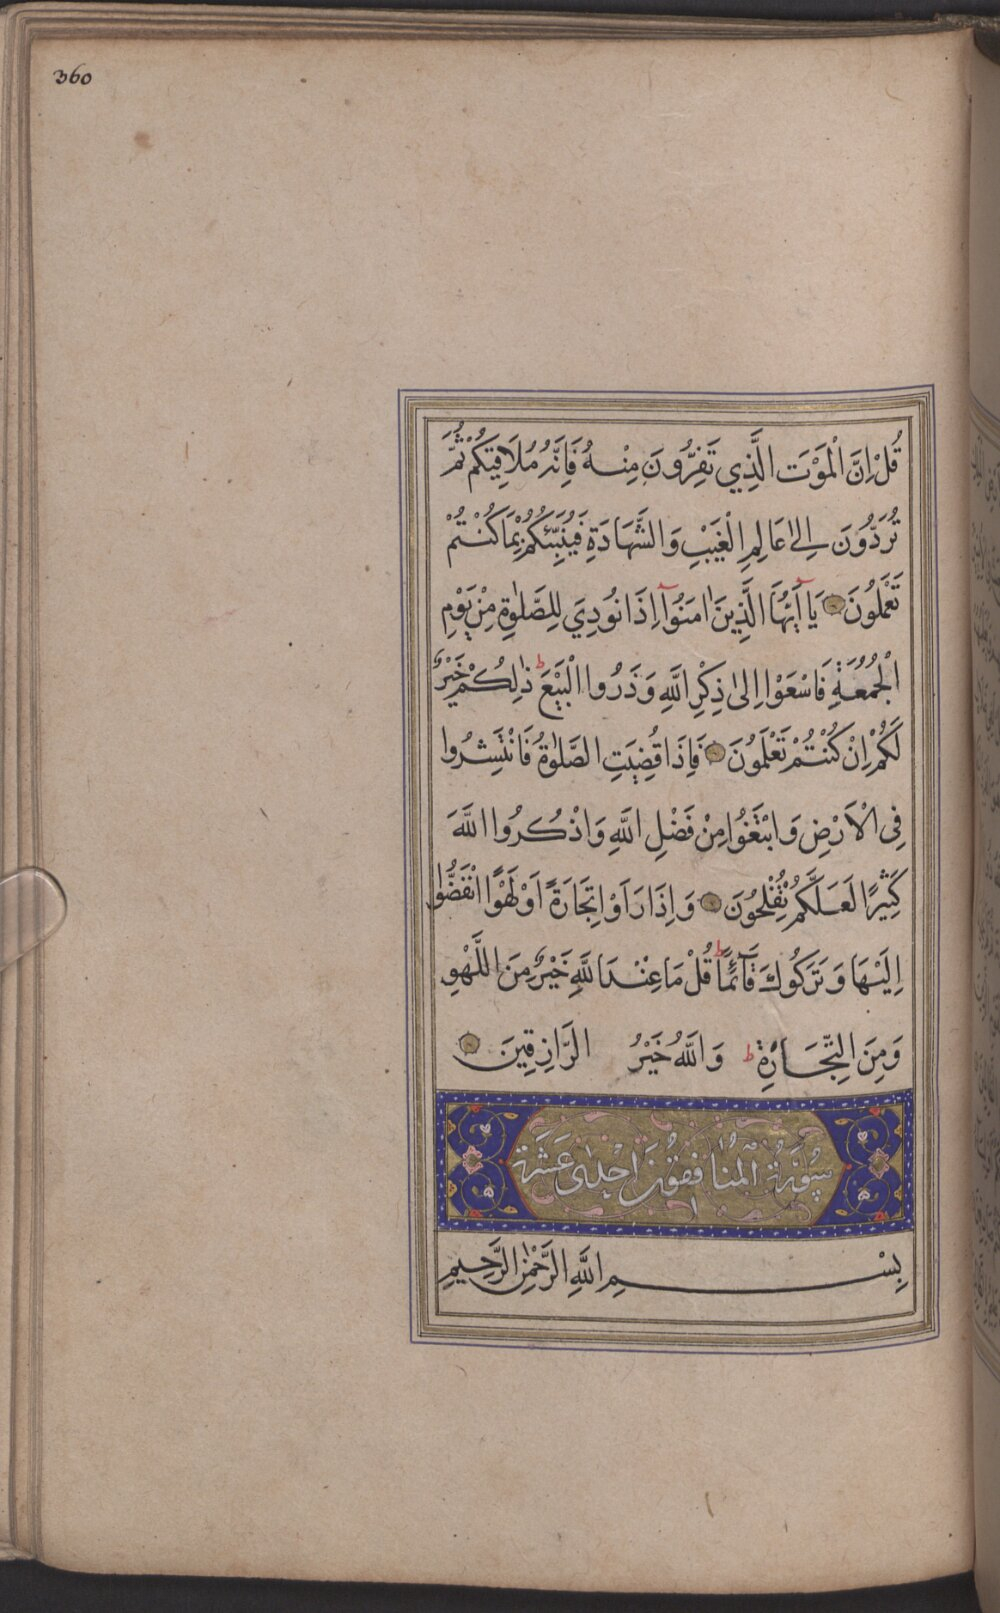 360
قُلْ اِنَّ الْمَوْتَ الَّذِي تَفِرُّونَ مِنْهُ فَاِنَّهُ مُلَاقِيكُمْ ثُمَّ
تُرَدُّونَ اِلٰى عَالِمِ الْغَيْبِ وَالشَّهَادَةِ فَيُنَبِّئُكُمْ بِمَا كُنْتُمْ
تَعْمَلُونَ يَآ اَيُّهَا الَّذِينَ اٰمَنُوٓا اِذَا نُودِيَ لِلصَّلٰوةِ مِنْ يَوْمِ
الْجُمُعَةِ فَاسْعَوْا اِلٰى ذِكْرِ اللّٰهِ وَذَرُوا الْبَيْعَ ط ذٰلِكُمْ خَيْرٌ
لَكُمْ اِنْ كُنْتُمْ تَعْلَمُونَ فَاِذَا قُضِيَتِ الصَّلٰوةُ فَانْتَشِرُوا
فِي الْاَرْضِ وَابْتَغُوا مِنْ فَضْلِ اللّٰهِ وَاذْكُرُوا اللّٰهَ
كَثِيرًا لَعَلَّكُمْ تُفْلِحُونَ وَاِذَا رَاَوْا تِجَارَةً اَوْ لَهْوًا انْفَضُّوا
اِلَيْهَا وَتَرَكُوكَ قَآئِمًا ط قُلْ مَا عِنْدَ اللّٰهِ خَيْرٌ مِنَ اللَّهْوِ
وَمِنَ التِّجَارَةِ ط وَاللّٰهُ خَيْرُ الرَّازِقِينَ
سُورَةُ الْمُنَافِقُونَ اِحْدٰى عَشَرَةَ
بِسْمِ اللّٰهِ الرَّحْمٰنِ الرَّحِيمِ